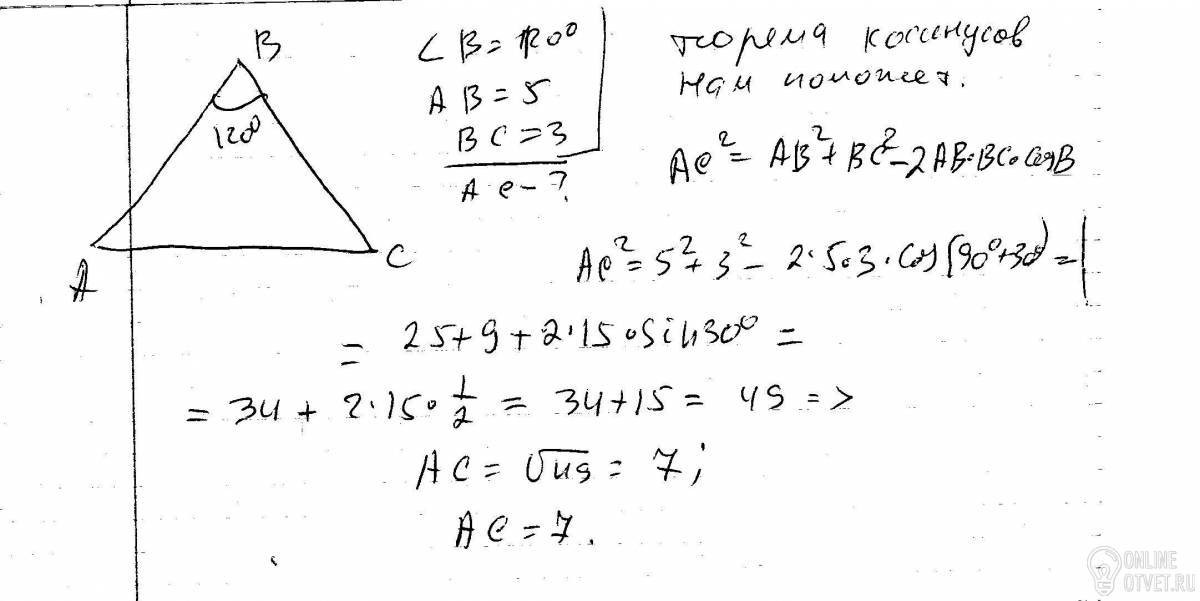 B
120°
A
C
∠ B = 120°
AB = 5
BC = 3
AC - ?
теорема косинусов
нам поможет.
AC² = AB² + BC² - 2AB·BC·cosB
AC² = 5² + 3² - 2·5·3·cos(90°+30°) =
= 25 + 9 + 2·15·sin30° =
= 34 + 2·15·1/2 = 34 + 15 = 49 =>
AC = √49 = 7;
AC = 7.
ONLINE
OTVET.RU